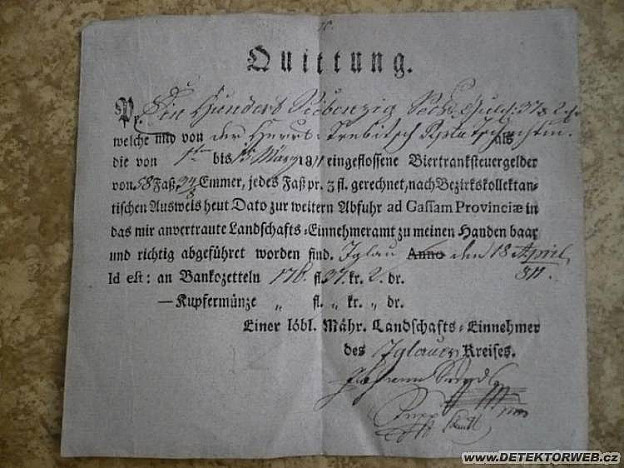 Quittung.
Pr. Ein Hundert Siebenzig Sechs Guld: 37 x 2 d
welche mir von der Herrs: Trebitsch als
die von 1ten bis 15 März 811 eingeflossene Biertranksteuergelder
von 58 Faß Emmer, jedes Faß pr. 3 fl. gerechnet, nach Bezirkskollektan-
tischen Ausweis heut Dato zur weitern Abfuhr ad Cassam Provinciæ in
das mir anvertraute Landschafts-Einnehmeramt zu meinen Handen baar
und richtig abgeführet worden sind. Iglau Anno den 18 April
Id est: an Bankozetteln 176. fl. 37. kr. 2. dr. 811.
—Kupfermünze „ fl. „ kr. „ dr.
Einer löbl. Mähr. Landschafts-Einnehmer
des Iglauer Kreises.
Johann
www.DETEKTORWEB.cz